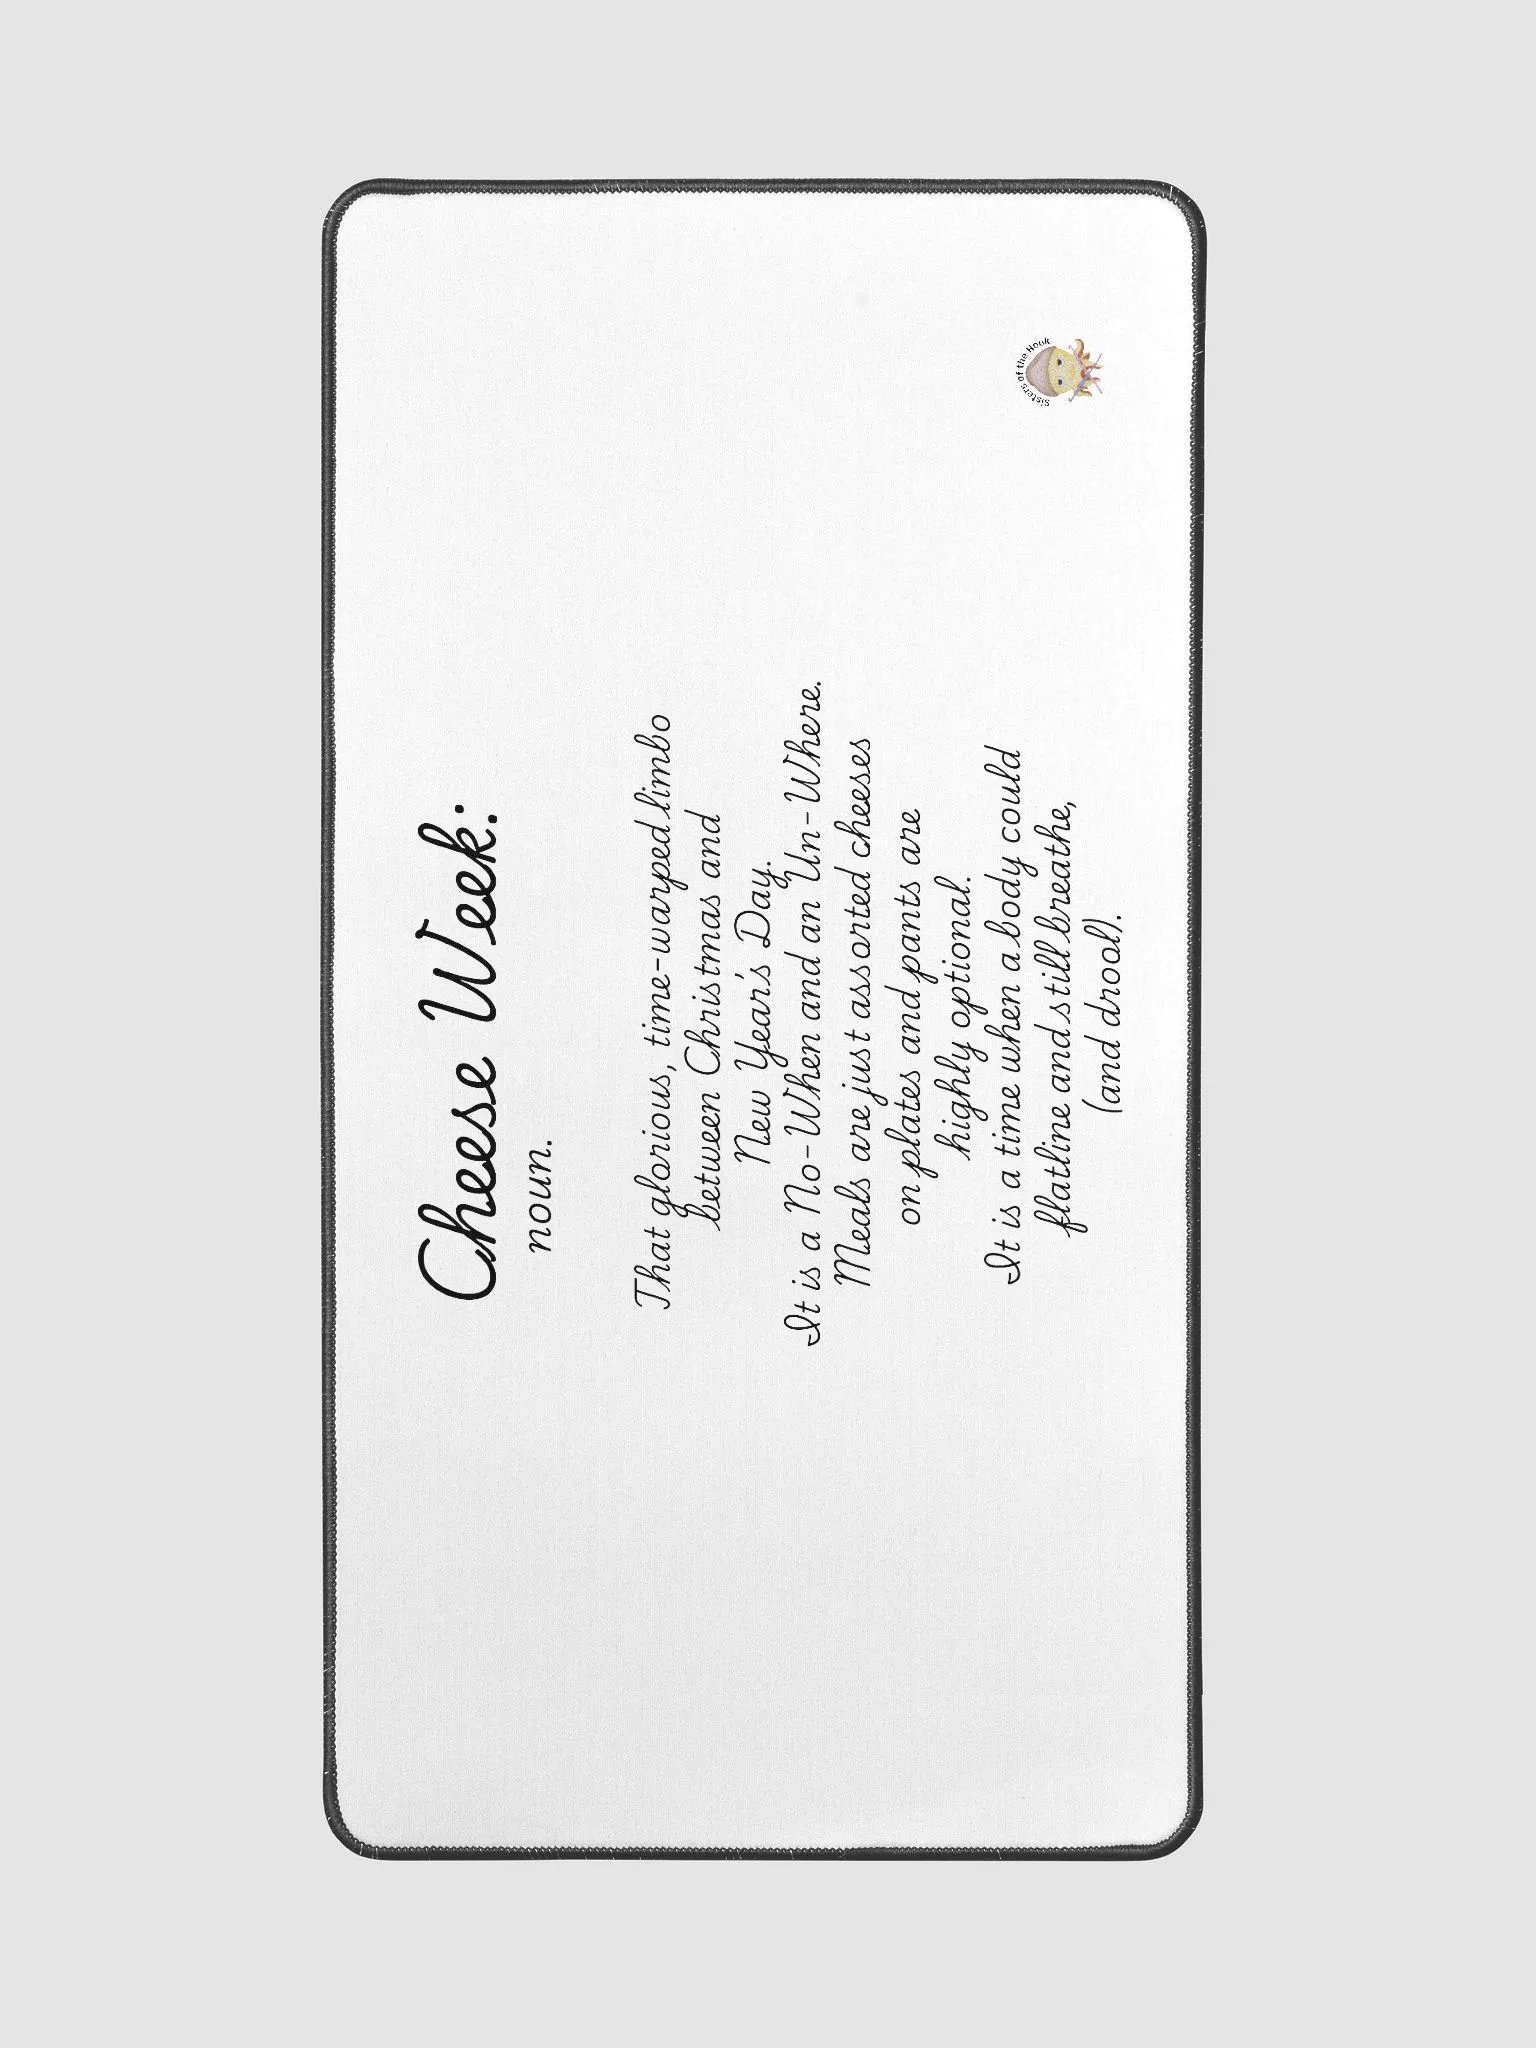 Cheese Week:
noun.
That glorious, time-warped limbo
between Christmas and
New Year's Day.
It is a No-When and an Un-Where.
Meals are just assorted cheeses
on plates and pants are
highly optional.
It is a time when a body could
flatline and still breathe,
(and drool).
Sisters of the Hook